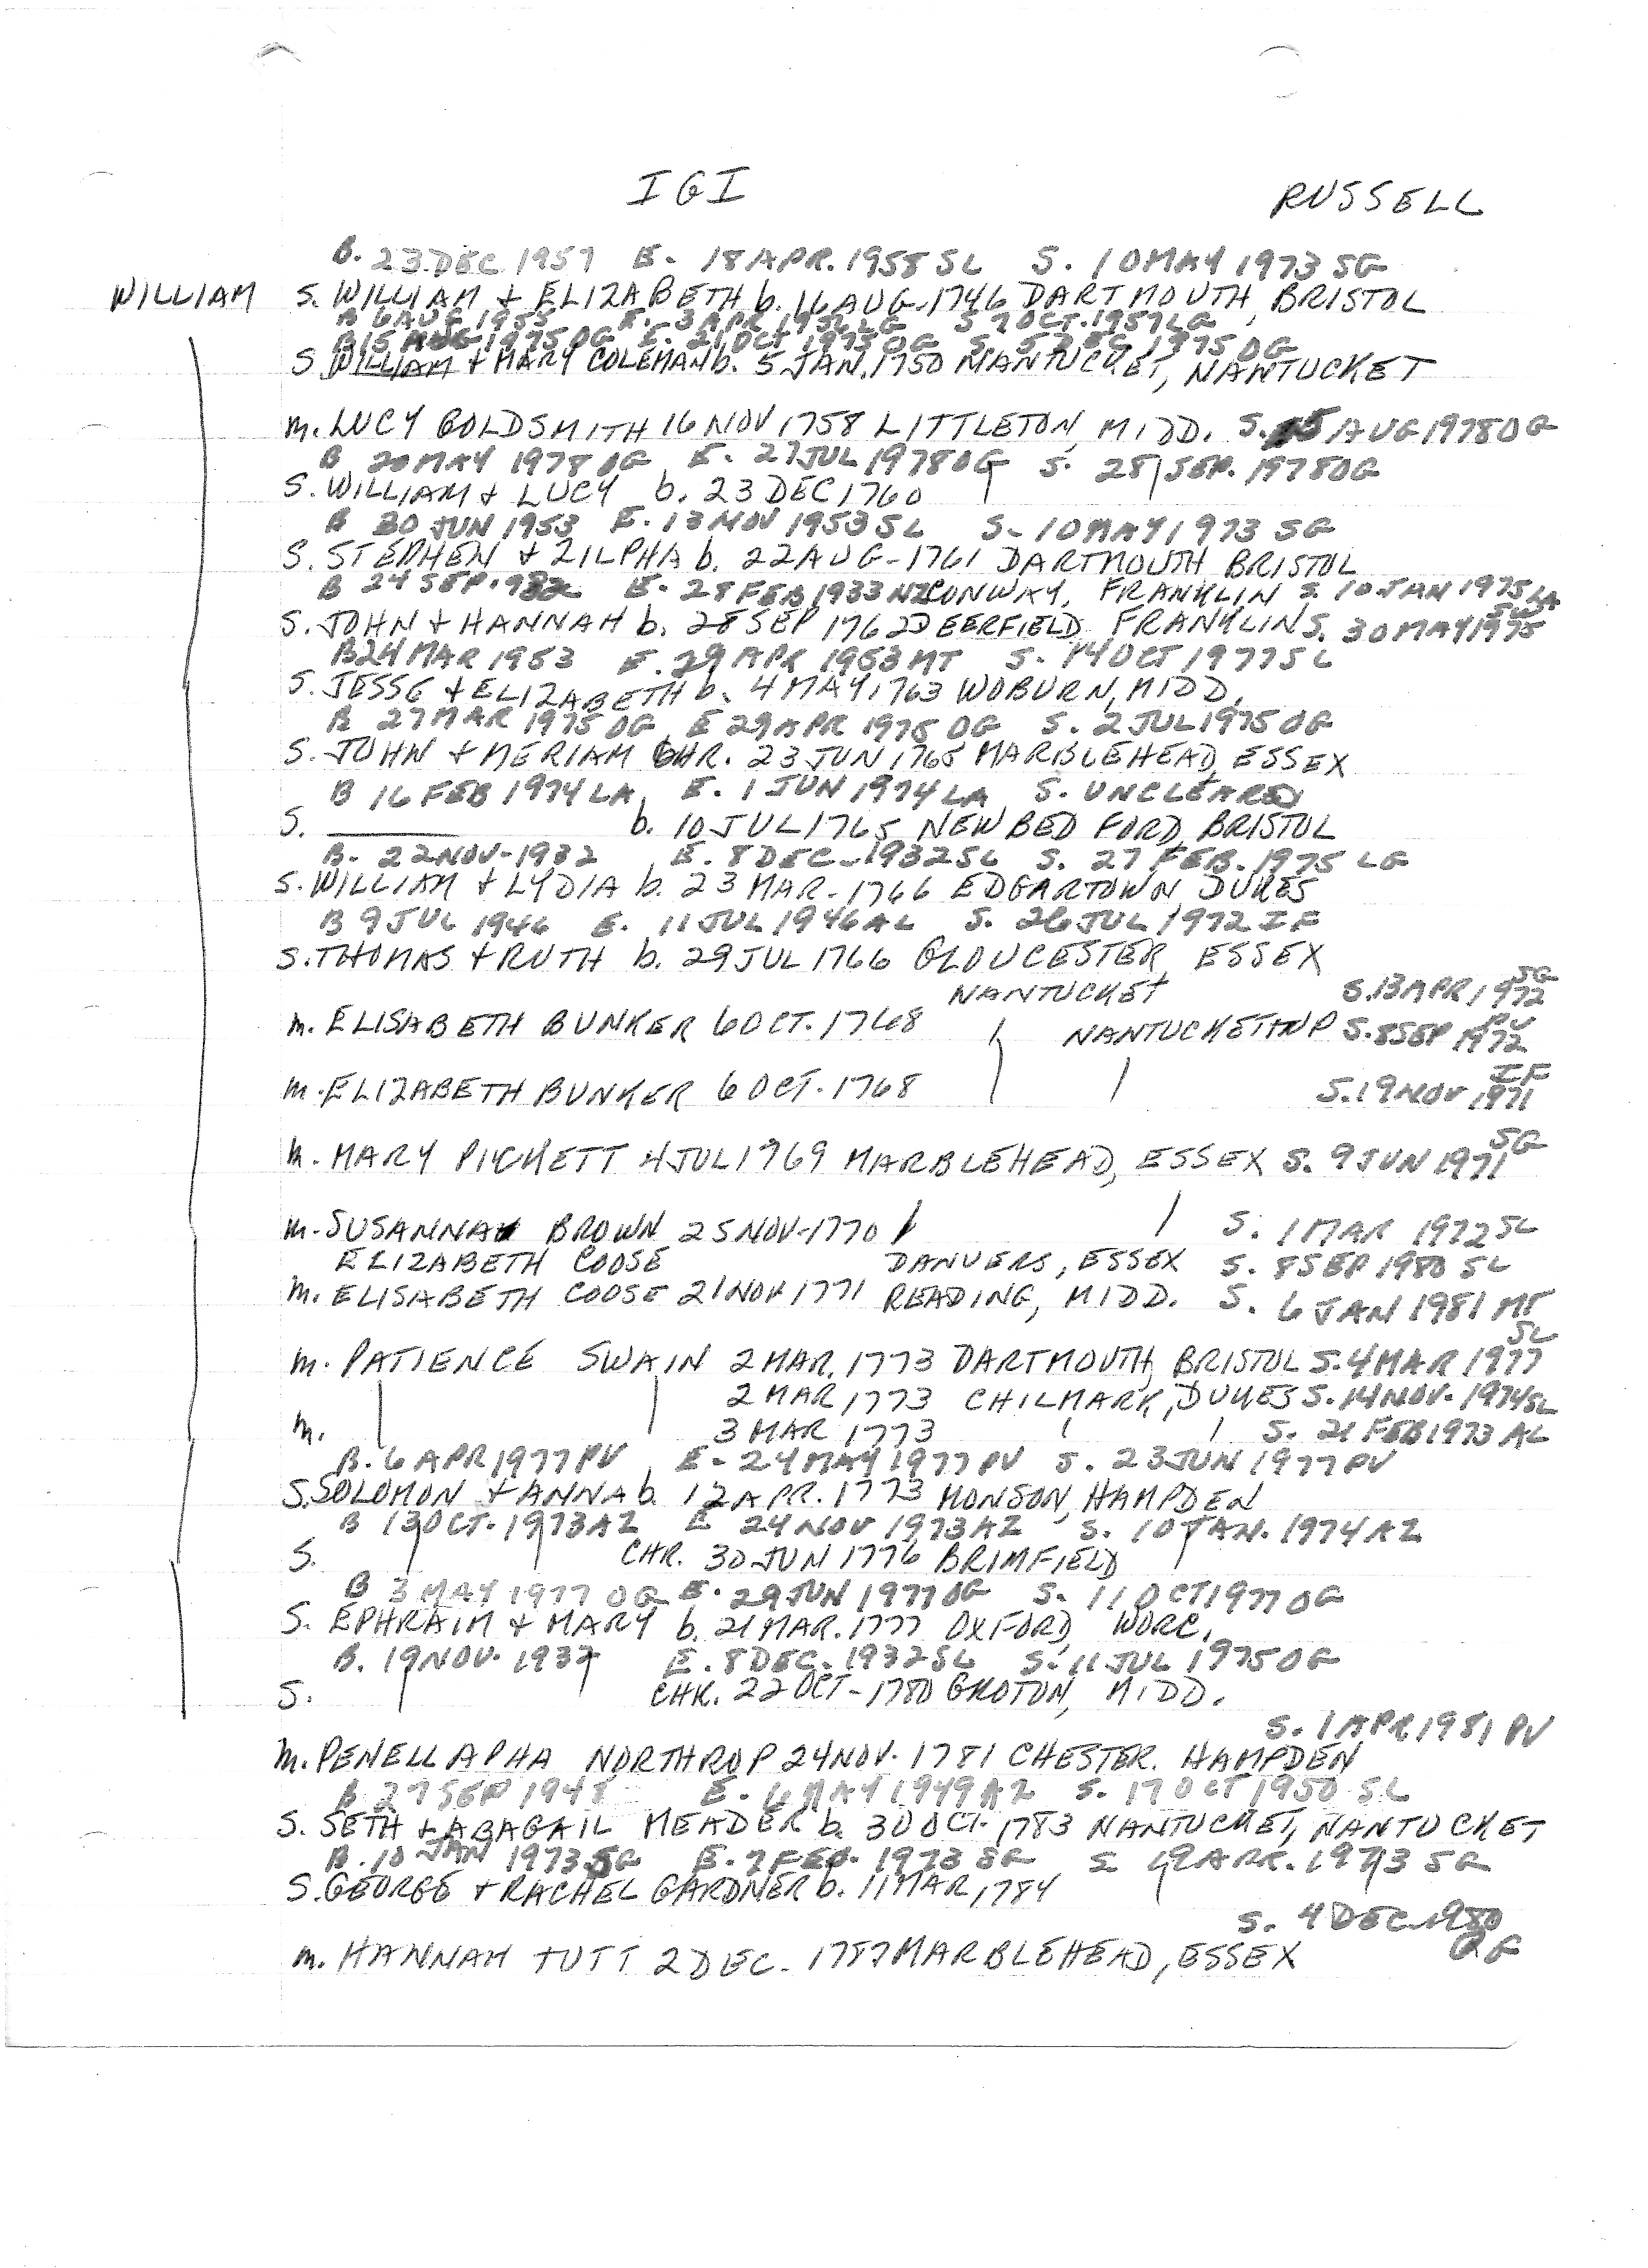 IGI
RUSSELL
B. 23 DEC 1957 E. 18 APR. 1958 SL S. 10 MAY 1973 SG
WILLIAM S. WILLIAM + ELIZABETH b. 16 AUG. 1746 DARTMOUTH, BRISTOL
B 6 AUG 1955 E. 3 APR 1956 LG S 7 OCT. 1957 LG
B 15 AUG 1975 OG E. 21 OCT 1975 OG S. 5 DEC 1975 OG
S. WILLIAM + MARY COLEMAN b. 5 JAN. 1750 NANTUCKET, NANTUCKET
m. LUCY GOLDSMITH 16 NOV 1758 LITTLETON, MIDD. S. 15 AUG 1978 OG
B 20 MAY 1978 OG E. 27 JUL 1978 OG S. 28 SEP. 1978 OG
S. WILLIAM + LUCY b. 23 DEC 1760
B 30 JUN 1953 E. 13 NOV 1953 SL S. 10 MAY 1973 SG
S. STEPHEN + ZILPHA b. 22 AUG - 1761 DARTMOUTH BRISTOL
B 24 SEP. 932 E. 28 FEB 1933 NZ CONWAY, FRANKLIN S. 10 JAN 1975 LA
S. JOHN + HANNAH b. 28 SEP 1762 DEERFIELD FRANKLIN S. 30 MAY 1975 SW
B 24 MAR 1953 E. 29 APR 1953 MT S. 14 OCT 1977 SL
S. JESSE + ELIZABETH b. 4 MAY 1763 WOBURN, MIDD.
B 27 MAR 1975 OG E 29 APR 1975 OG S. 2 JUL 1975 OG
S. JOHN + MERIAM CHR. 23 JUN 1765 MARBLEHEAD, ESSEX
B 16 FEB 1974 LA, E. 1 JUN 1974 LA S. UNCLEARED
S. b. 10 JUL 1765 NEW BEDFORD, BRISTOL
B. 22 NOV - 1932 E. 8 DEC - 1932 SL S. 27 FEB. 1975 LG
S. WILLIAM + LYDIA b. 23 MAR. 1766 EDGARTOWN, DUKES
B 9 JUL 1946 E. 11 JUL 1946 AL S. 26 JUL 1972 IF
S. THOMAS + RUTH b. 29 JUL 1766 GLOUCESTER, ESSEX
NANTUCKET S. 13 APR 1972 SG
m. ELISABETH BUNKER 6 OCT. 1768 NANTUCKET S. 8 SEP 1972 PV
m. ELIZABETH BUNKER 6 OCT. 1768 S. 19 NOV 1971 IF
m. MARY PICKETT 4 JUL 1769 MARBLEHEAD, ESSEX S. 9 JUN 1971 SG
m. SUSANNAH BROWN 25 NOV - 1770 S. 1 MAR 1972 SL
ELIZABETH COOSE DANVERS, ESSEX S. 8 SEP 1980 SL
m. ELISABETH COOSE 21 NOV 1771 READING, MIDD. S. 6 JAN 1981 MT
m. PATIENCE SWAIN 2 MAR. 1773 DARTMOUTH, BRISTOL S. 4 MAR 1977 SL
2 MAR 1773 CHILMARK, DUKES S. 14 NOV. 1974 SL
m. 3 MAR 1773 S. 21 FEB 1973 AL
B. 6 APR 1977 PV E - 24 MAY 1977 PV S. 23 JUN 1977 PV
S. SOLOMON + ANNA b. 12 APR. 1773 MONSON, HAMPDEN
B 13 OCT. 1973 AZ E 24 NOV 1973 AZ S. 10 JAN. 1974 AZ
S. CHR. 30 JUN 1776 BRIMFIELD
B 3 MAY 1977 OG E. 29 JUN 1977 OG S. 11 OCT 1977 OG
S. EPHRAIM + MARY b. 21 MAR. 1777 OXFORD, WORC.
B. 19 NOV. 1932 E. 8 DEC. 1932 SL S. 11 JUL 1975 OG
S. CHR. 22 OCT - 1780 GROTON, MIDD.
S. 1 APR 1981 PV
m. PENELLAPHA NORTHROP 24 NOV. 1781 CHESTER. HAMPDEN
B 27 SEP 1948 E. 6 MAY 1949 AZ S. 17 OCT 1950 SL
S. SETH + ABAGAIL MEADER b. 30 OCT. 1783 NANTUCKET, NANTUCKET
B. 10 JAN 1973 SG E. 7 FEB. 1973 SG S 19 APR. 1973 SG
S. GEORGE + RACHEL GARDNER b. 11 MAR, 1784
S. 4 DEC 1980 OG
m. HANNAH TUTT 2 DEC. 1787 MARBLEHEAD, ESSEX